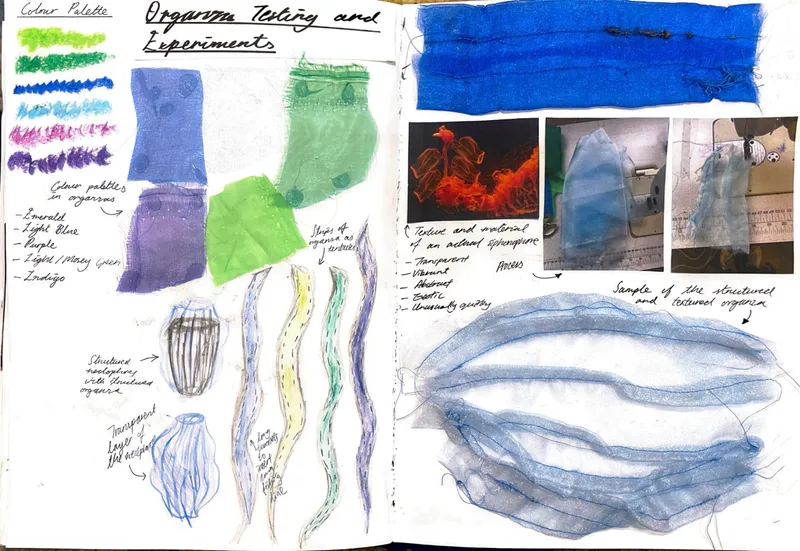 Colour Palette
Organza Testing and
Experiments
Colour palettes
in organzas
- Emerald
- Light Blue
- Purple
- Light / Mossy Green
- Indigo
Strips of
organza as
tentacles
Structured
nectophores
with structured
organza
Transparent
layer of
the
long
to
Texture and material
of an actual siphonophore
- Transparent
- Vibrant
- Abstract
- Exotic
- Unusually
Process
Sample of the structured
and textured organza